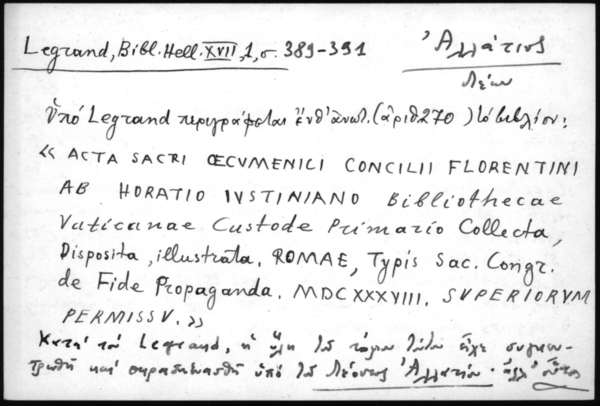 Legrand, Bibl. Hell. XVII, 1, σ. 389-391
Ἀλλάτιος
Λέων
Ὑπό Legrand περιγράφεται ἔνθ' ἀνωτ. (ἀριθ 270) τό βιβλίον:
« ACTA SACRI ŒCVMENICI CONCILII FLORENTINI
AB HORATIO IVSTINIANO Bibliothecae
Vaticanae Custode Primario Collecta,
Disposita, illustrata. ROMAE, Typis Sac. Congr.
de Fide Propaganda. MDCXXXVIII. SVPERIORVM
PERMISSV. »
Κατά τόν Legrand, ἡ ὕλη τοῦ τόμου τούτου εἶχε συγκεν-
τρωθῆ καί παρασκευασθῆ ὑπό τοῦ Λέοντος Ἀλλατίου· ἀλλ' οὗτος